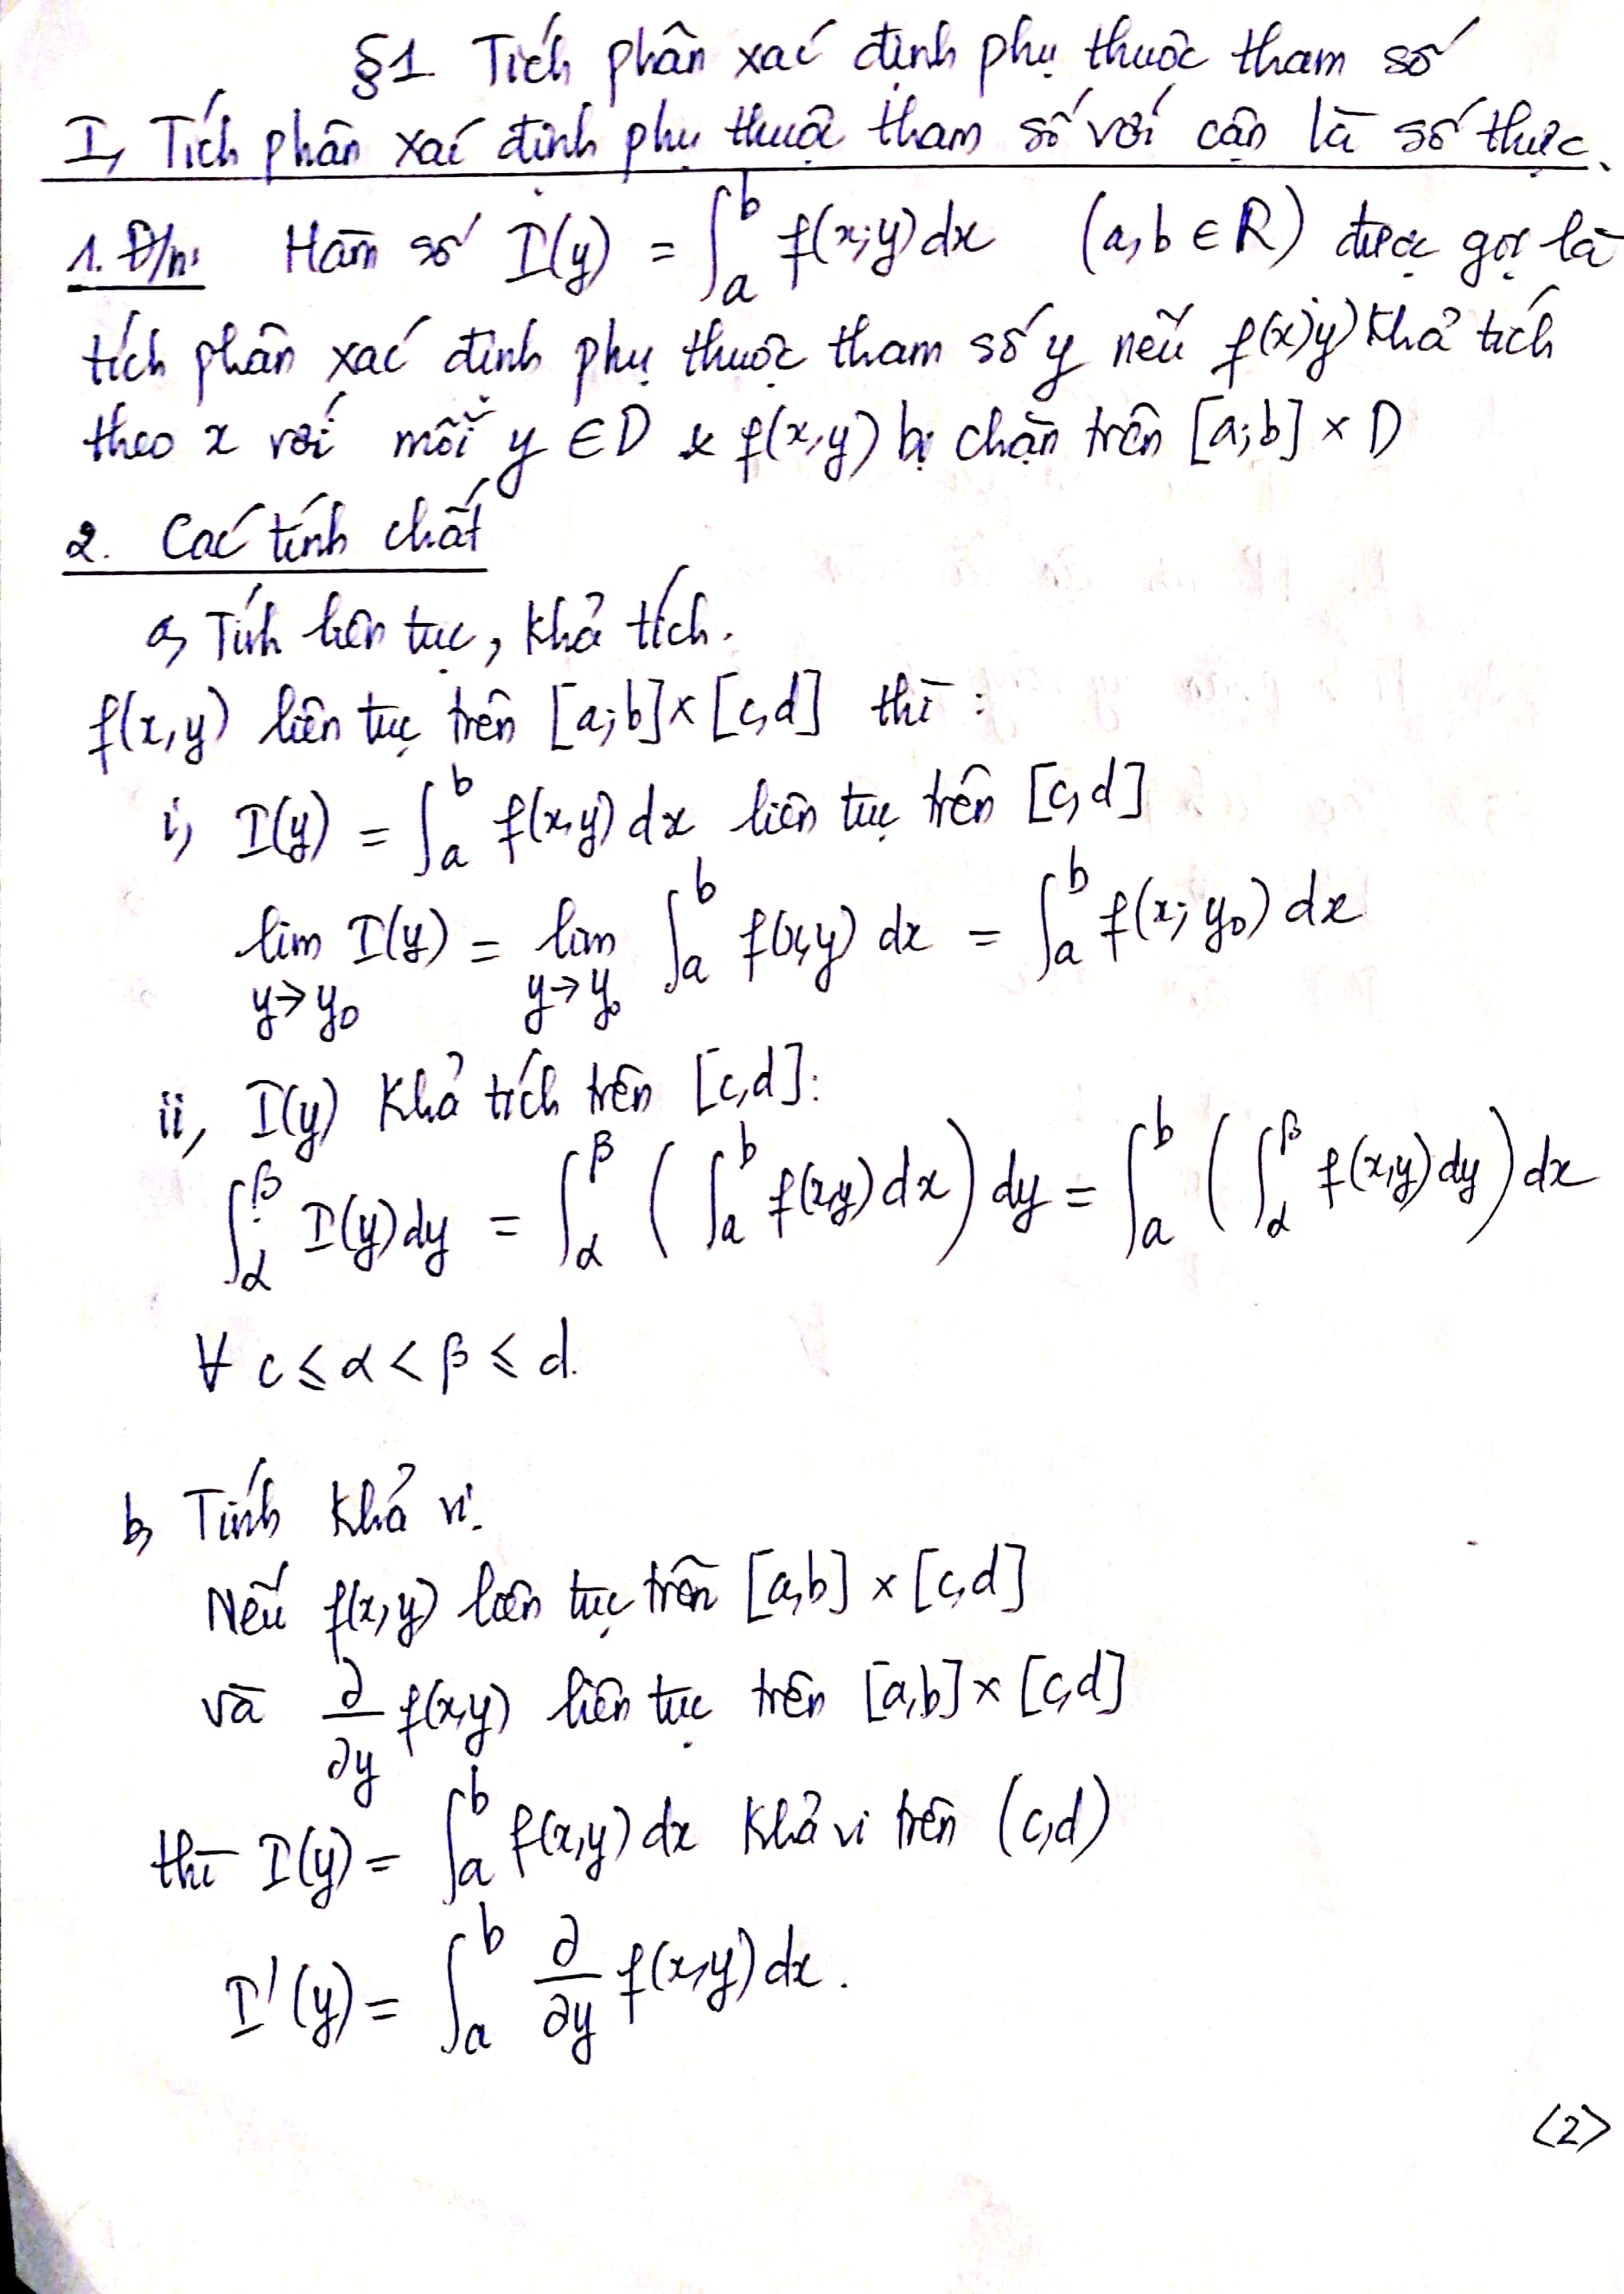 §1 Tích phân xác định phụ thuộc tham số
I, Tích phân xác định phụ thuộc tham số với cận là số thực.
1. Đ/n: Hàm số I(y) = ∫_a^b f(x;y) dx (a,b ∈ R) được gọi là
tích phân xác định phụ thuộc tham số y nếu f(x;y) khả tích
theo x với mỗi y ∈ D & f(x,y) bị chặn trên [a;b] × D
2. Các tính chất
a, Tính liên tục, khả tích.
f(x,y) liên tục trên [a;b] × [c,d] thì :
i, I(y) = ∫_a^b f(x,y) dx liên tục trên [c,d]
lim_{y→y₀} I(y) = lim_{y→y₀} ∫_a^b f(x,y) dx = ∫_a^b f(x; y₀) dx
ii, I(y) khả tích trên [c,d]:
∫_α^β I(y) dy = ∫_α^β ( ∫_a^b f(x,y) dx ) dy = ∫_a^b ( ∫_α^β f(x,y) dy ) dx
∀ c ≤ α < β ≤ d.
b, Tính khả vi.
Nếu f(x,y) liên tục trên [a,b] × [c,d]
và ∂/∂y f(x,y) liên tục trên [a,b] × [c,d]
thì I(y) = ∫_a^b f(x,y) dx khả vi trên (c,d)
I'(y) = ∫_a^b ∂/∂y f(x,y) dx.
<2>